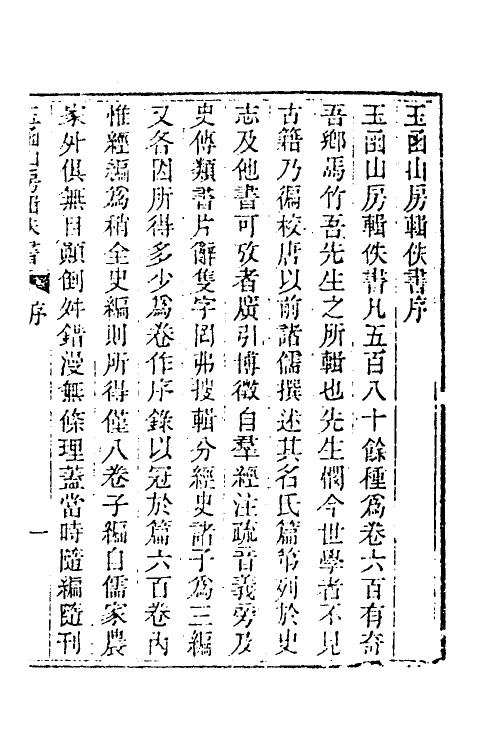 玉函山房輯佚書序
玉函山房輯佚書凡五百八十餘種爲卷六百有奇
吾鄉馮竹吾先生之所輯也先生憫今世學者不見
古籍乃徧校唐以前諸儒撰述其名氏篇第列於史
志及他書可攷者廣引博徵自羣經注疏音義旁及
史傳類書片辭隻字罔弗搜輯分經史諸子爲三編
又各因所得多少爲卷作序錄以冠於篇六百卷內
惟經編爲稍全史編則所得僅八卷子編自儒家農
家外俱無目顚倒舛錯漫無條理蓋當時隨編隨刊
玉函山房輯佚書 序 一